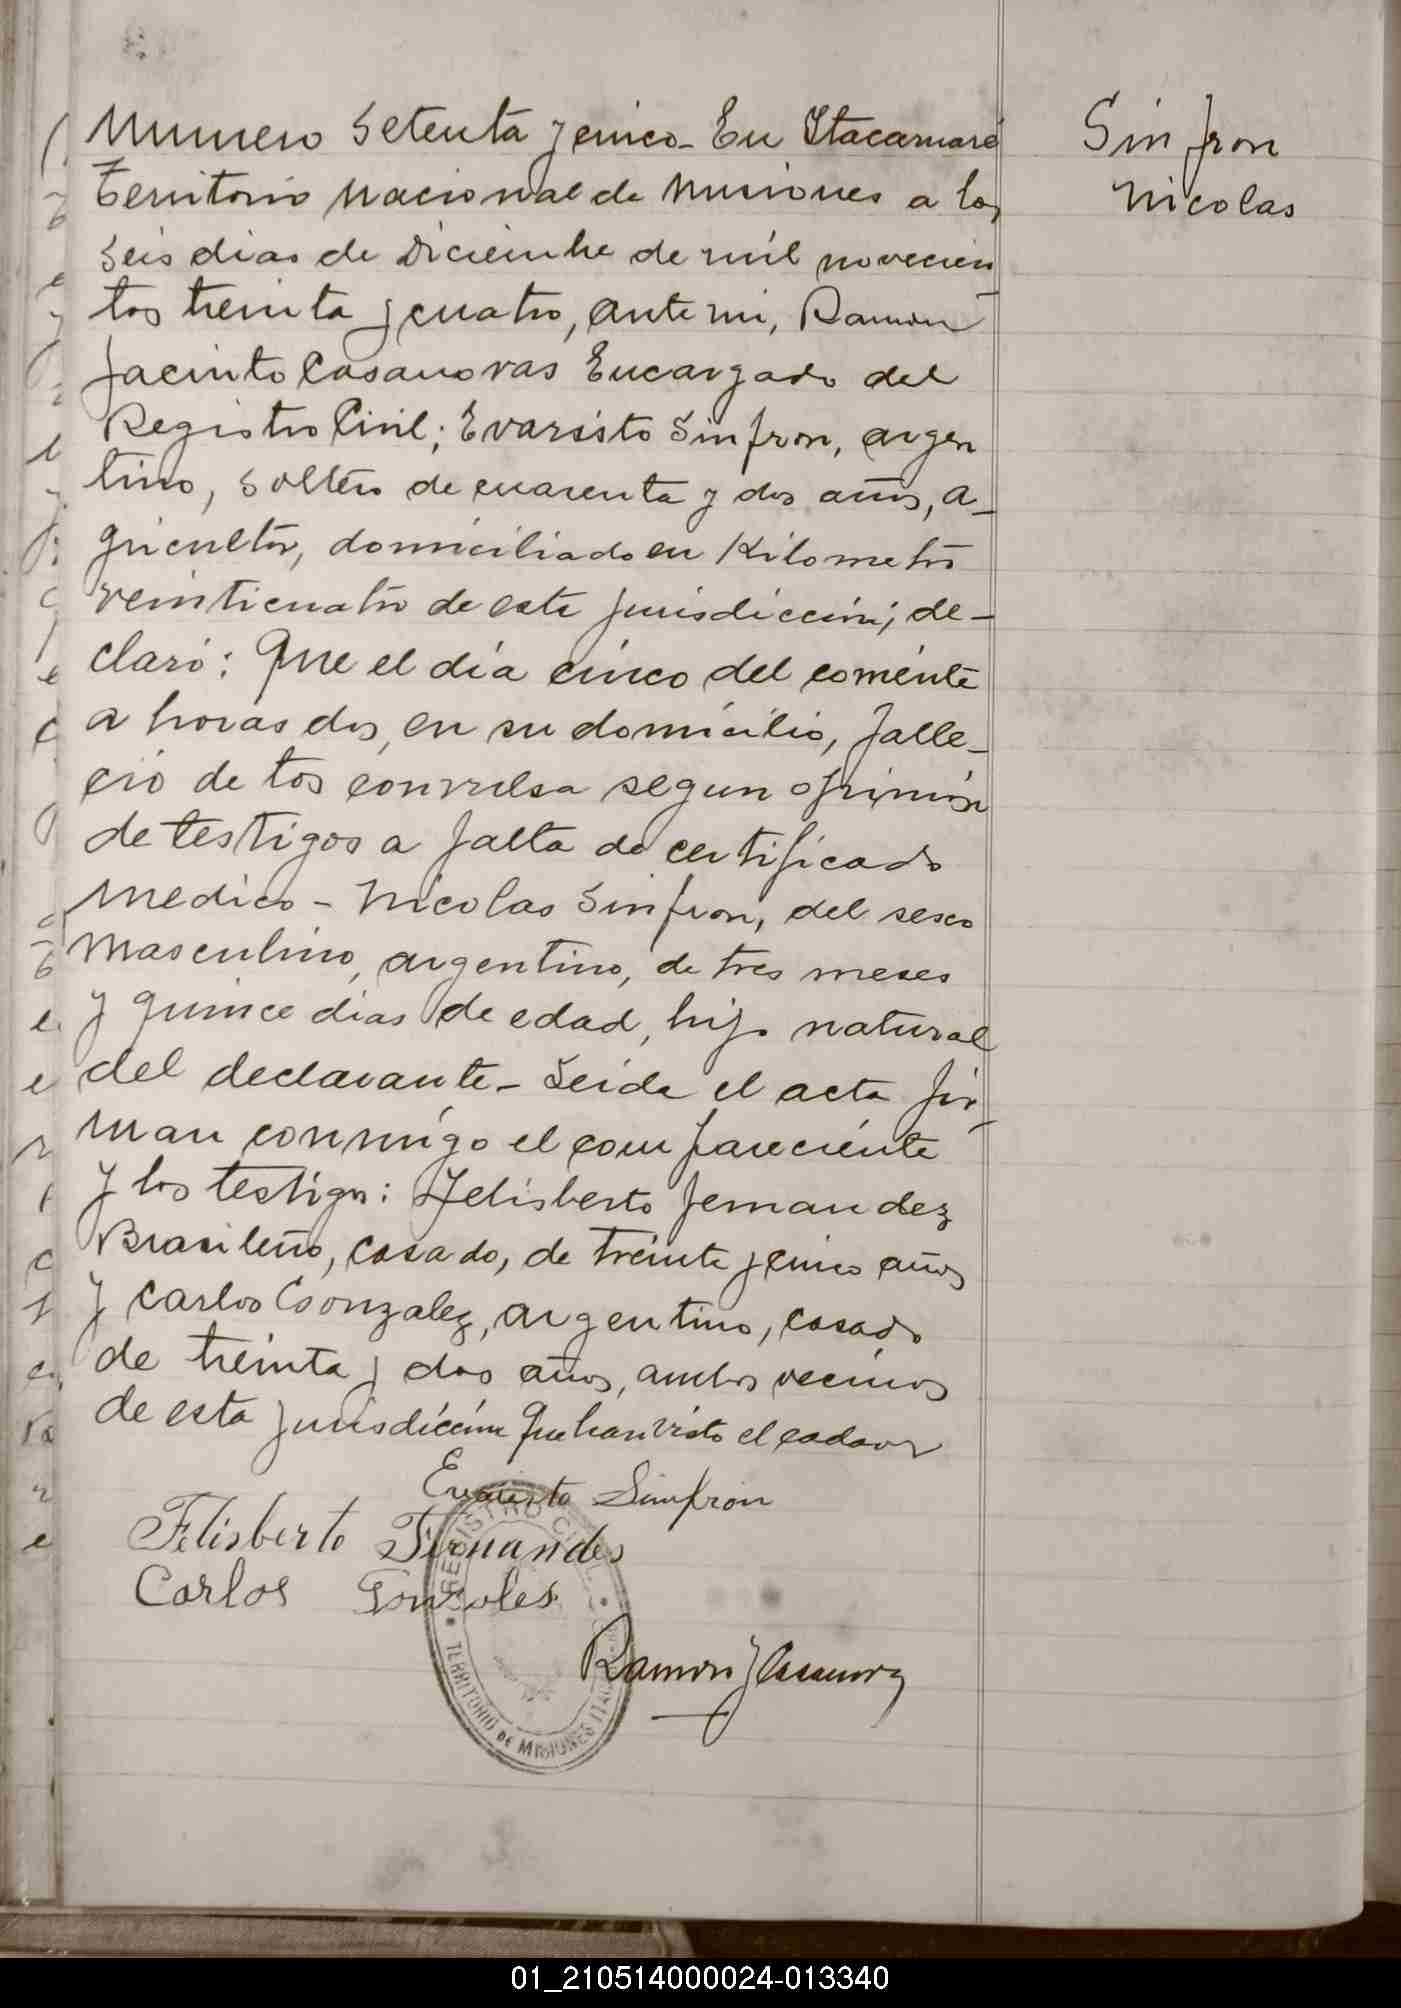 Numero Setenta y cinco - En Itacaruaré
Territorio Nacional de Misiones a los
seis dias de Diciembre de mil novecien
tos treinta y cuatro, ante mi, Ramon
Jacinto Casanovas Encargado del
Registro Civil; Evaristo Sinfron, argen
tino, soltero de cuarenta y dos años, a-
gricultor, domiciliado en Kilometro
veinticuatro de esta jurisdicción; de-
claró: Que el día cinco del corriente
a horas dos, en su domicilio, falle-
ció de tos convulsa segun opinión
de testigos a falta de certificado
medico - Nicolas Sinfron, del sexo
masculino, argentino, de tres meses
y quince dias de edad, hijo natural
del declarante - Leida el acta fir-
man conmigo el compareciente
y los testigos: Felisberto Fernandez
Brasileño, casado, de treinta y cinco años
y Carlos Gonzalez, argentino, casado
de treinta y dos años, ambos vecinos
de esta jurisdicción que han visto el cadaver
Evaristo Sinfron
Felisberto Fernandes
Carlos Gonzales
Ramon J Casanova
REGISTRO CIVIL
TERRITORIO DE MISIONES
Sinfron
Nicolas
01_210514000024-013340